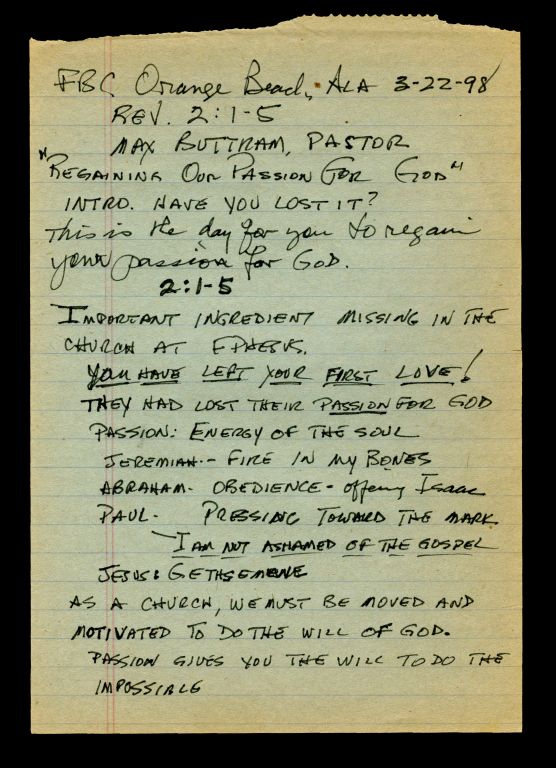 FBC Orange Beach, ALA 3-22-98
REV. 2:1-5
MAX BUTTRAM, PASTOR
"REGAINING OUR PASSION FOR GOD"
INTRO. HAVE YOU LOST IT?
This is the day for you to regain
your passion for GOD.
2:1-5
IMPORTANT INGREDIENT MISSING IN THE
CHURCH AT EPHESUS.
YOU HAVE LEFT YOUR FIRST LOVE!
THEY HAD LOST THEIR PASSION FOR GOD
PASSION: ENERGY OF THE SOUL
JEREMIAH - FIRE IN MY BONES
ABRAHAM - OBEDIENCE - offering Isaac
PAUL - PRESSING TOWARD THE MARK
I AM NOT ASHAMED OF THE GOSPEL
JESUS: GETHSEMENE
AS A CHURCH, WE MUST BE MOVED AND
MOTIVATED TO DO THE WILL OF GOD.
PASSION GIVES YOU THE WILL TO DO THE
IMPOSSIBLE